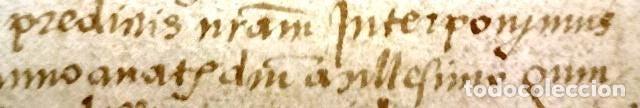 predictis nram Interponimus
anno a nath dni millesimo quin
todocoleccion.net